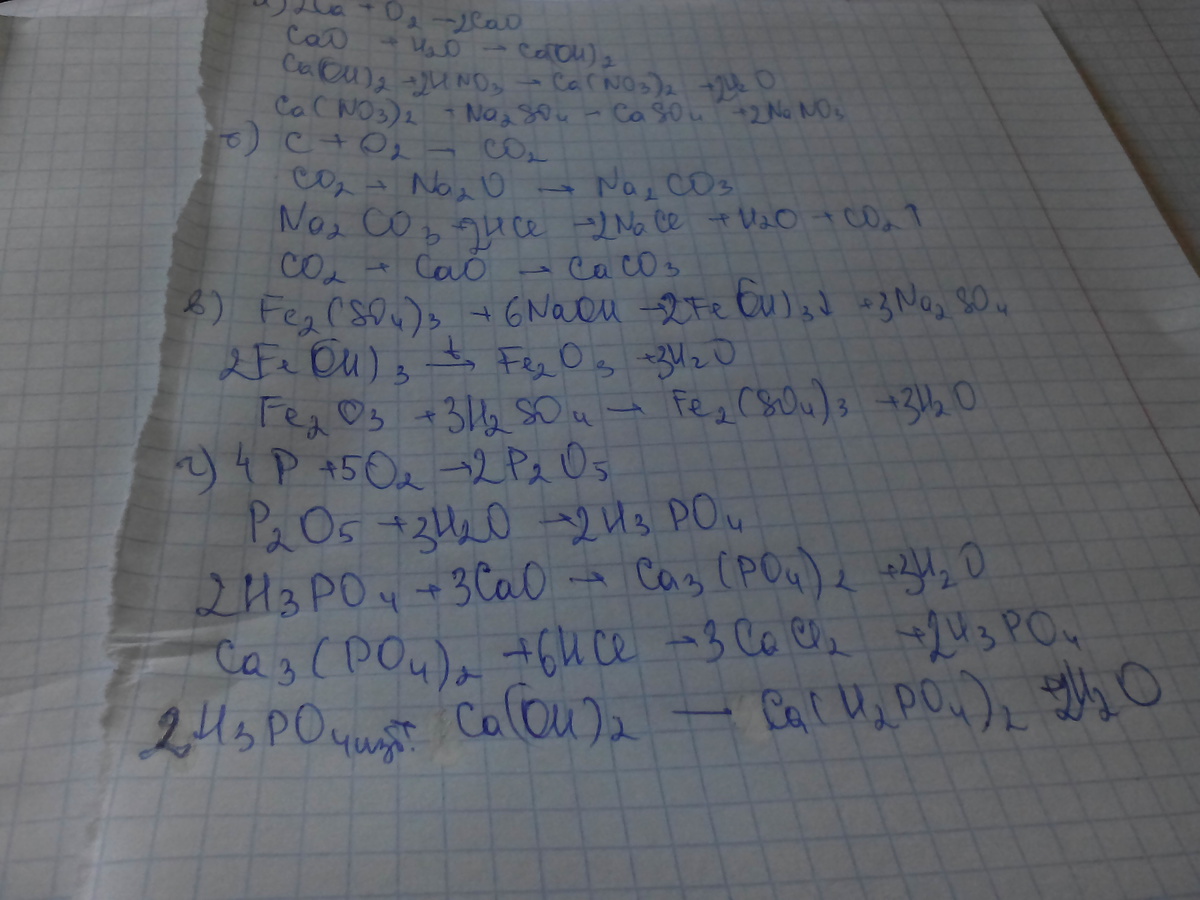 а) 2Ca + O2 → 2CaO
CaO + H2O → Ca(OH)2
Ca(OH)2 + 2HNO3 → Ca(NO3)2 + 2H2O
Ca(NO3)2 + Na2SO4 → CaSO4 + 2NaNO3
б) C + O2 → CO2
CO2 + Na2O → Na2CO3
Na2CO3 + 2HCl → 2NaCl + H2O + CO2↑
CO2 + CaO → CaCO3
в) Fe2(SO4)3 + 6NaOH → 2Fe(OH)3↓ + 3Na2SO4
2Fe(OH)3 t→ Fe2O3 + 3H2O
Fe2O3 + 3H2SO4 → Fe2(SO4)3 + 3H2O
г) 4P + 5O2 → 2P2O5
P2O5 + 3H2O → 2H3PO4
2H3PO4 + 3CaO → Ca3(PO4)2 + 3H2O
Ca3(PO4)2 + 6HCl → 3CaCl2 + 2H3PO4
2H3PO4 изб. + Ca(OH)2 — Ca(H2PO4)2 + 2H2O